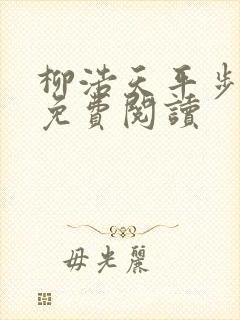 柳浩天平步
免費閱讀
毋光麗